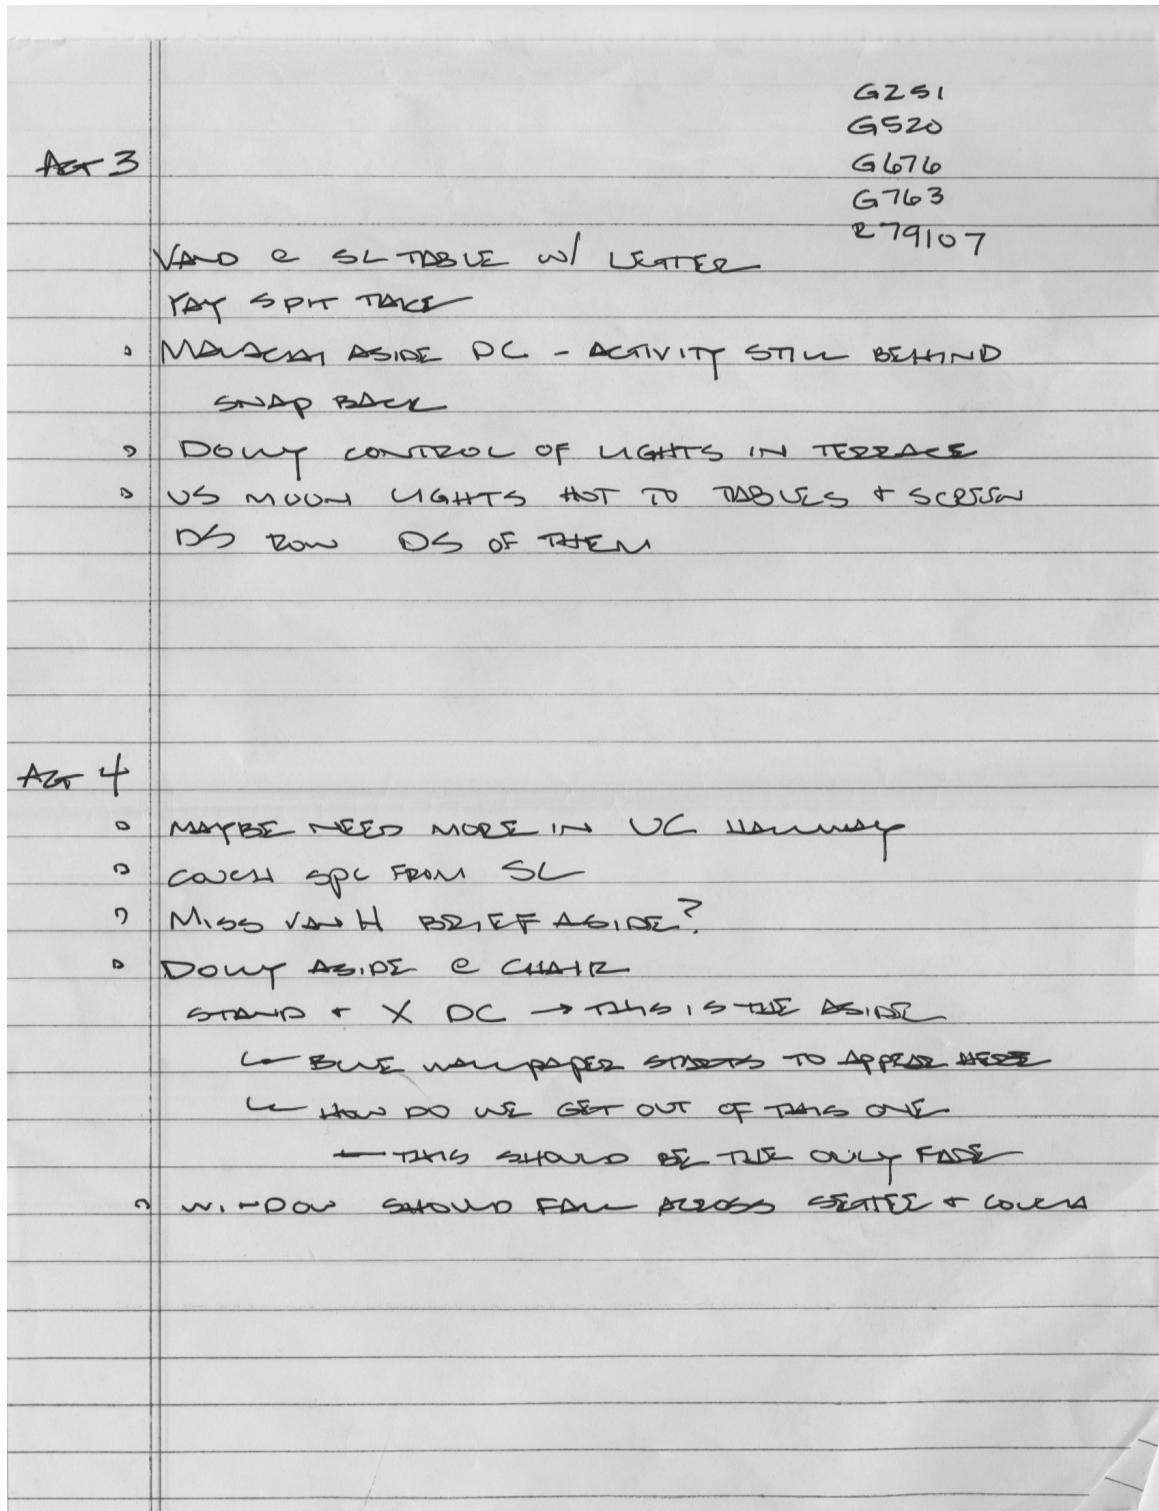 G251
G520
G676
G763
R79107
ACT 3
VAND @ SL TABLE W/ LETTER
YAY SPIT TAKE
MALACHI ASIDE DC - ACTIVITY STILL BEHIND
SNAP BACK
DOLLY CONTROL OF LIGHTS IN TERRACE
US MOON LIGHTS HOT TO TABLES + SCREEN
DS ROW DS OF THEM
ACT 4
MAYBE NEED MORE IN UC HALLWAY
COUCH SPC FROM SL
MISS VAN H BRIEF ASIDE?
DOLLY ASIDE @ CHAIR
STAND + X DC → THIS IS THE ASIDE
BLUE WALLPAPER STARTS TO APPEAR HERE
HOW DO WE GET OUT OF THIS ONE
THIS SHOULD BE THE ONLY FADE
WINDOW SHOULD FALL ACROSS SETTEE + COUCH